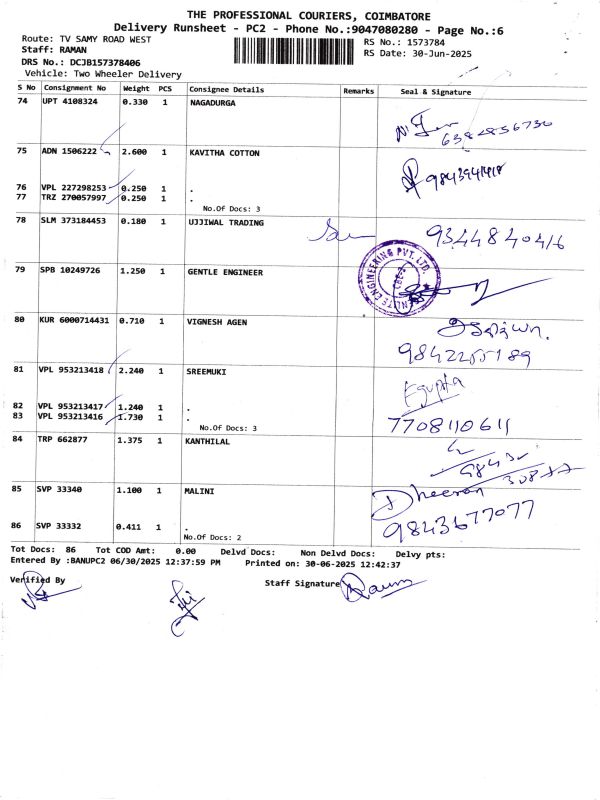 THE PROFESSIONAL COURIERS, COIMBATORE
Delivery Runsheet - PC2 - Phone No.:9047080280 - Page No.:6
Route: TV SAMY ROAD WEST
RS No.: 1573784
Staff: RAMAN
RS Date: 30-Jun-2025
DRS No.: DCJB157378406
Vehicle: Two Wheeler Delivery
S No Consignment No Weight PCS Consignee Details Remarks Seal & Signature
74 UPT 4108324 0.330 1 NAGADURGA
6382856730
75 ADN 1506222 2.600 1 KAVITHA COTTON
76 VPL 227298253 0.250 1 .
77 TRZ 270057997 0.250 1 .
No.Of Docs: 3
78 SLM 373184453 0.180 1 UJJIWAL TRADING
9344840416
79 SPB 10249726 1.250 1 GENTLE ENGINEER
ENGINEERING PVT. LTD.
80 KUR 6000714431 0.710 1 VIGNESH AGEN
9842255189
81 VPL 953213418 2.240 1 SREEMUKI
82 VPL 953213417 1.240 1 .
83 VPL 953213416 1.730 1 .
No.Of Docs: 3
7708110611
84 TRP 662877 1.375 1 KANTHILAL
85 SVP 33340 1.100 1 MALINI
Dheeran
9843677077
86 SVP 33332 0.411 1 .
No.Of Docs: 2
Tot Docs: 86 Tot COD Amt: 0.00 Delvd Docs: Non Delvd Docs: Delvy pts:
Entered By :BANUPC2 06/30/2025 12:37:59 PM Printed on: 30-06-2025 12:42:37
Verified By
Staff Signature
Raman